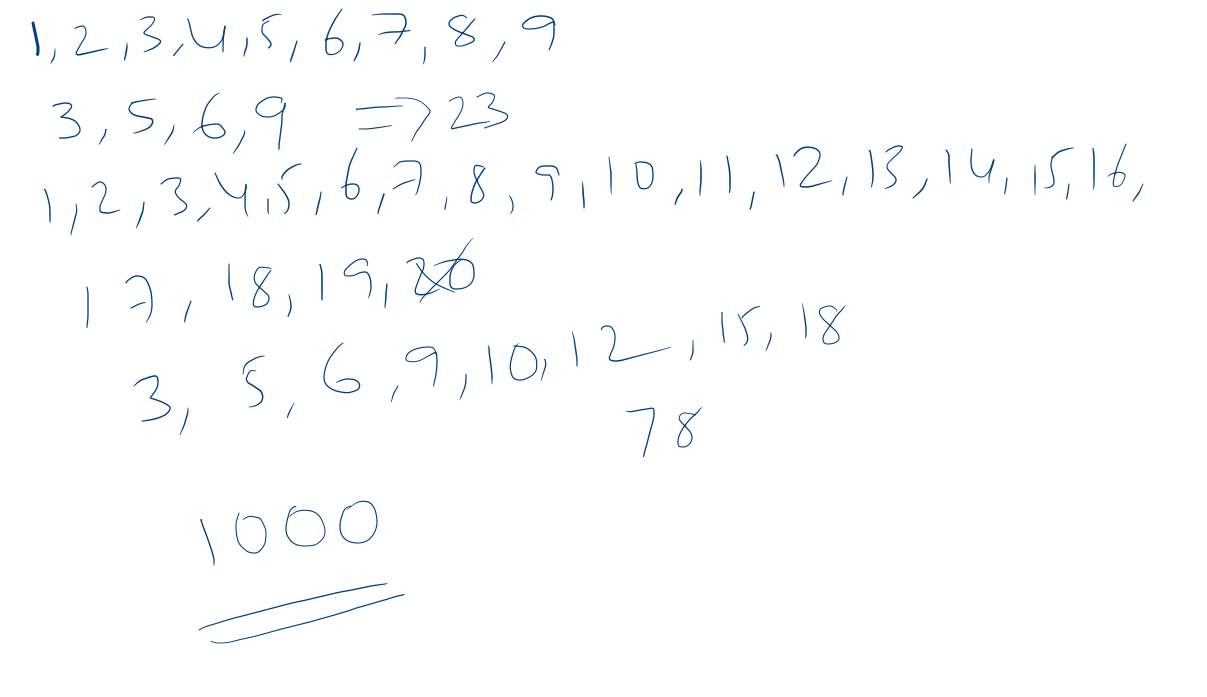 1, 2, 3, 4, 5, 6, 7, 8, 9
3, 5, 6, 9 => 23
1, 2, 3, 4, 5, 6, 7, 8, 9, 10, 11, 12, 13, 14, 15, 16,
17, 18, 19, 20
3, 5, 6, 9, 10, 12, 15, 18
78
1000